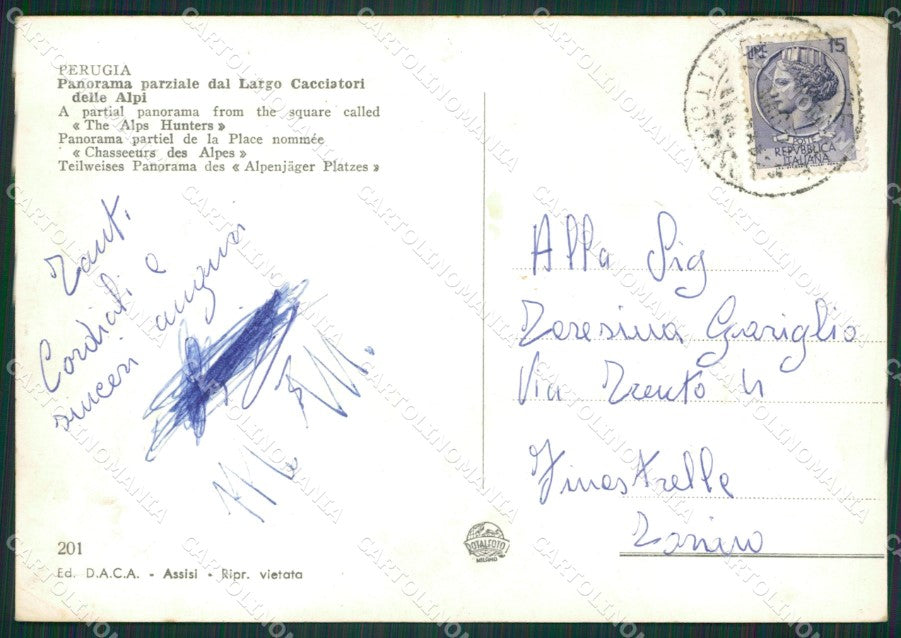 PERUGIA
Panorama parziale dal Largo Cacciatori
delle Alpi
A partial panorama from the square called
« The Alps Hunters »
Panorama partiel de la Place nommée
« Chasseeurs des Alpes »
Teilweises Panorama des « Alpenjäger Platzes »
Tanti
Cordiali e
sinceri auguri
201
Ed. D.A.C.A. - Assisi - Ripr. vietata
TOTALFOTO
MILANO
LIRE 15
POSTE
REPVBBLICA
ITALIANA
Alla Sig
Teresina Gariglio
Via Trento 4
Finestrelle
Torino
CARTOLINOMANIA